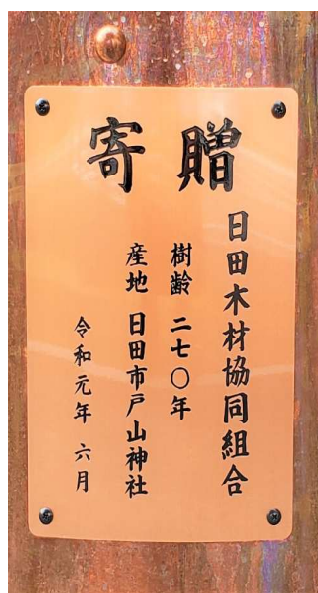 寄贈
日田木材協同組合
樹齢 二七〇年
産地 日田市戸山神社
令和元年 六月